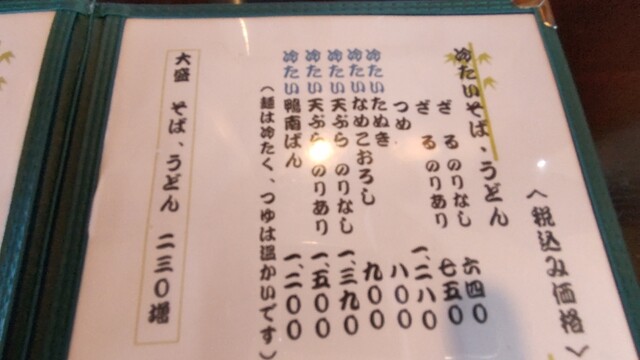 〈税込み価格〉
冷たいそば、うどん
ざる のりなし 六四〇
ざる のりあり 七五〇
つめ 一、二八〇
冷たいたぬき 八〇〇
冷たいなめこおろし 九〇〇
冷たい天ぷら のりなし 一、三九〇
冷たい天ぷら のりあり 一、五〇〇
冷たい鴨南ばん 一、二〇〇
（麺は冷たく、つゆは温かいです）
大盛 そば、うどん 二三〇増